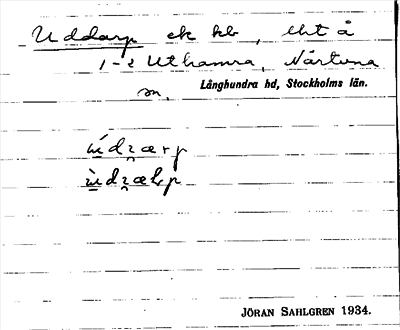 Uddarp ek kb, lht å
1-2 Uthamra, Närtuna
sn, Långhundra hd, Stockholms län.
JÖRAN SAHLGREN 1934.